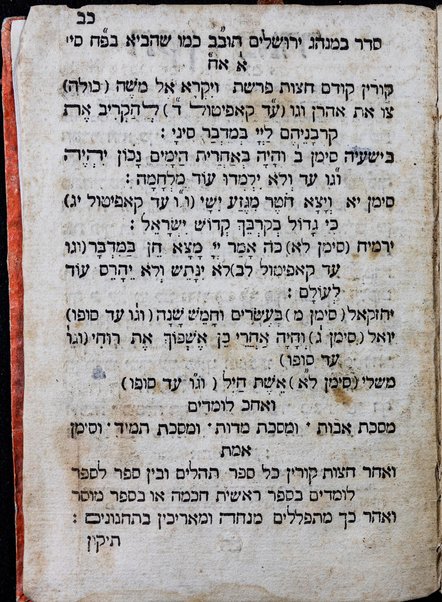 כב
סדר כמנהג ירושלים תובב כמו שהביא בפ״ח סי׳
א אח
קורין קודם חצות פרשת ויקרא אל משה (כולה)
צו את אהרן וגו (עד קאפיטול ד) לְהַקְרִיב אֶת
קָרְבְּנֵיהֶם לַיְיָ בְּמִדְבַּר סִינָי :
בישעיה סימן ב וְהָיָה בְּאַחֲרִית הַיָּמִים נָכוֹן יִהְיֶה
וגו עד וְלֹא יִלְמְדוּ עוֹד מִלְחָמָה :
סימן יא וְיָצָא חֹטֶר מִגֶּזַע יִשָׁי (וגו עד קאפיטול יג)
כִּי גָדוֹל בְּקִרְבֵּךְ קְדוֹשׁ יִשְׂרָאֵל :
ירמיה (סימן לא) כֹּה אָמַר יְיָ מָצָא חֵן בַּמִּדְבָּר (וגו
עד קאפיטול לב) לֹא יִנָּתֵשׁ וְלֹא יֵהָרֵס עוֹד
לְעוֹלָם :
יחזקאל (סימן מ) בְּעֶשְׂרִים וְחָמֵשׁ שָׁנָה (וגו עד סופו)
יואל (סימן ג) וְהָיָה אַחֲרֵי כֵן אֶשְׁפּוֹךְ אֶת רוּחִי (וגו
עד סופו)
משלי (סימן לא) אֵשֶׁת חַיִל (וגו עד סופו)
ואחכ לומדים
מסכת אבות ׳ ומסכת מדות ׳ ומסכת תמיד ׳ וסימן
אמת
ואחר חצות קורין כל ספר תהלים ובין ספר לספר
לומדים בספר ראשית חכמה או בספר מוסר
ואחר כך מתפללים מנחה ומאריכין בתחנונים :
תיקון